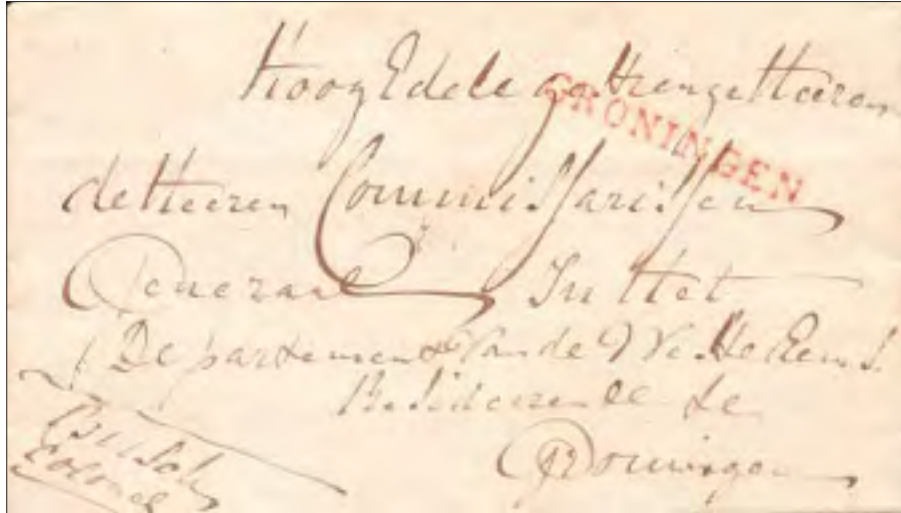 Hoog Edele gestrenge Heeren
GRONINGEN
de Heeren Commissarissen
Generaal In Het
Departement Van de Wester Eems
Resideerende te
Groningen
Colonel